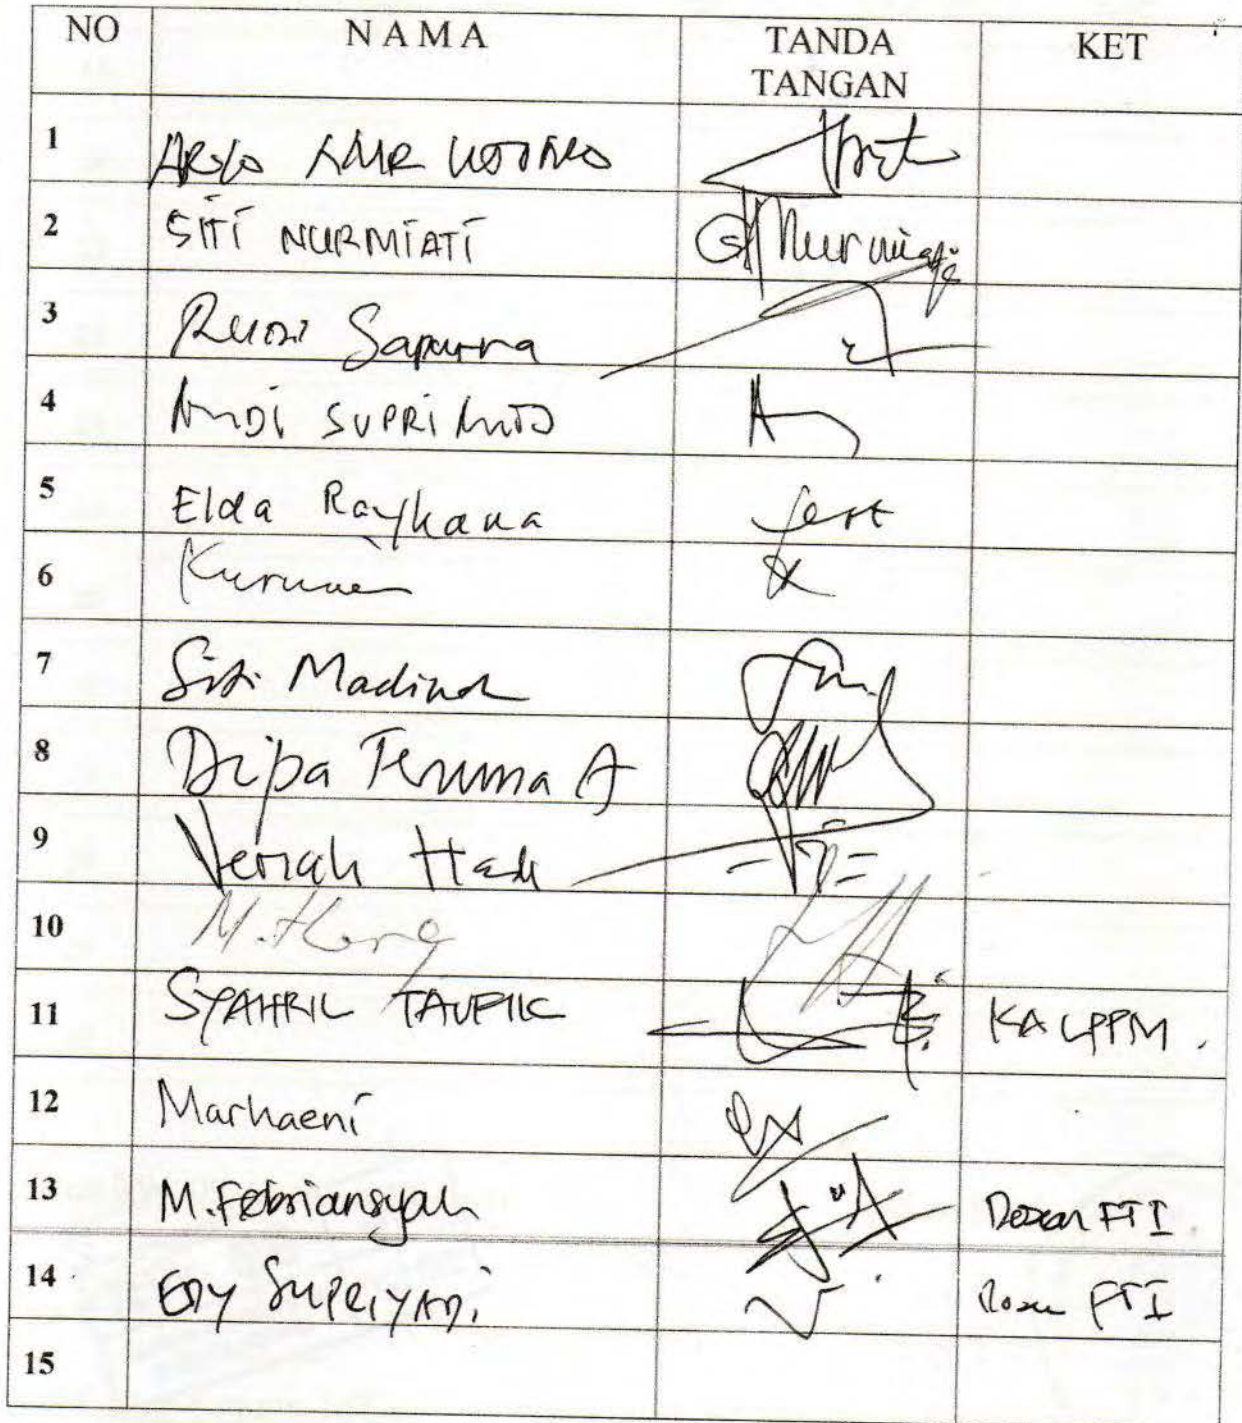 NO NAMA TANDA TANGAN KET
1
2 SITI NURMIATI Nurmiati
3 Saputra
4 ANDI SUPRIANTO
5 Elda Rayhana
6
7 Siti Madinah
8 Dipa Teruna A
9 Veriah Hadi
10 M.
11 SYAHRIL TAUFIK KA LPPM.
12 Marhaeni
13 M. Febriansyah Dosen FTI
14 EDY SUPRIYADI Dosen FTI
15